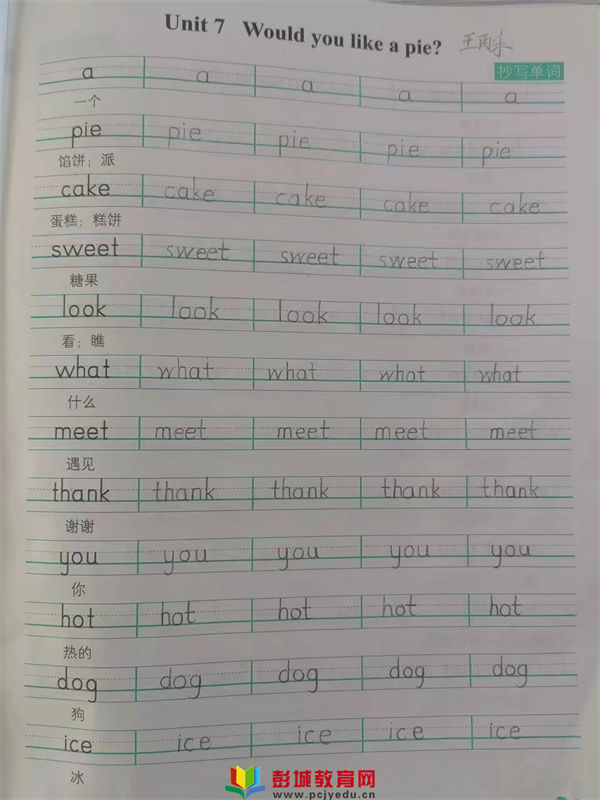 Unit 7 Would you like a pie? 王雨乐
抄写单词
a a a a a
一个
pie pie pie pie pie
馅饼；派
cake cake cake cake cake
蛋糕；糕饼
sweet sweet sweet sweet sweet
糖果
look look look look look
看；瞧
what what what what what
什么
meet meet meet meet meet
遇见
thank thank thank thank thank
谢谢
you you you you you
你
hot hot hot hot hot
热的
dog dog dog dog dog
狗
ice ice ice ice ice
冰
彭城教育网
www.pcjyedu.cn